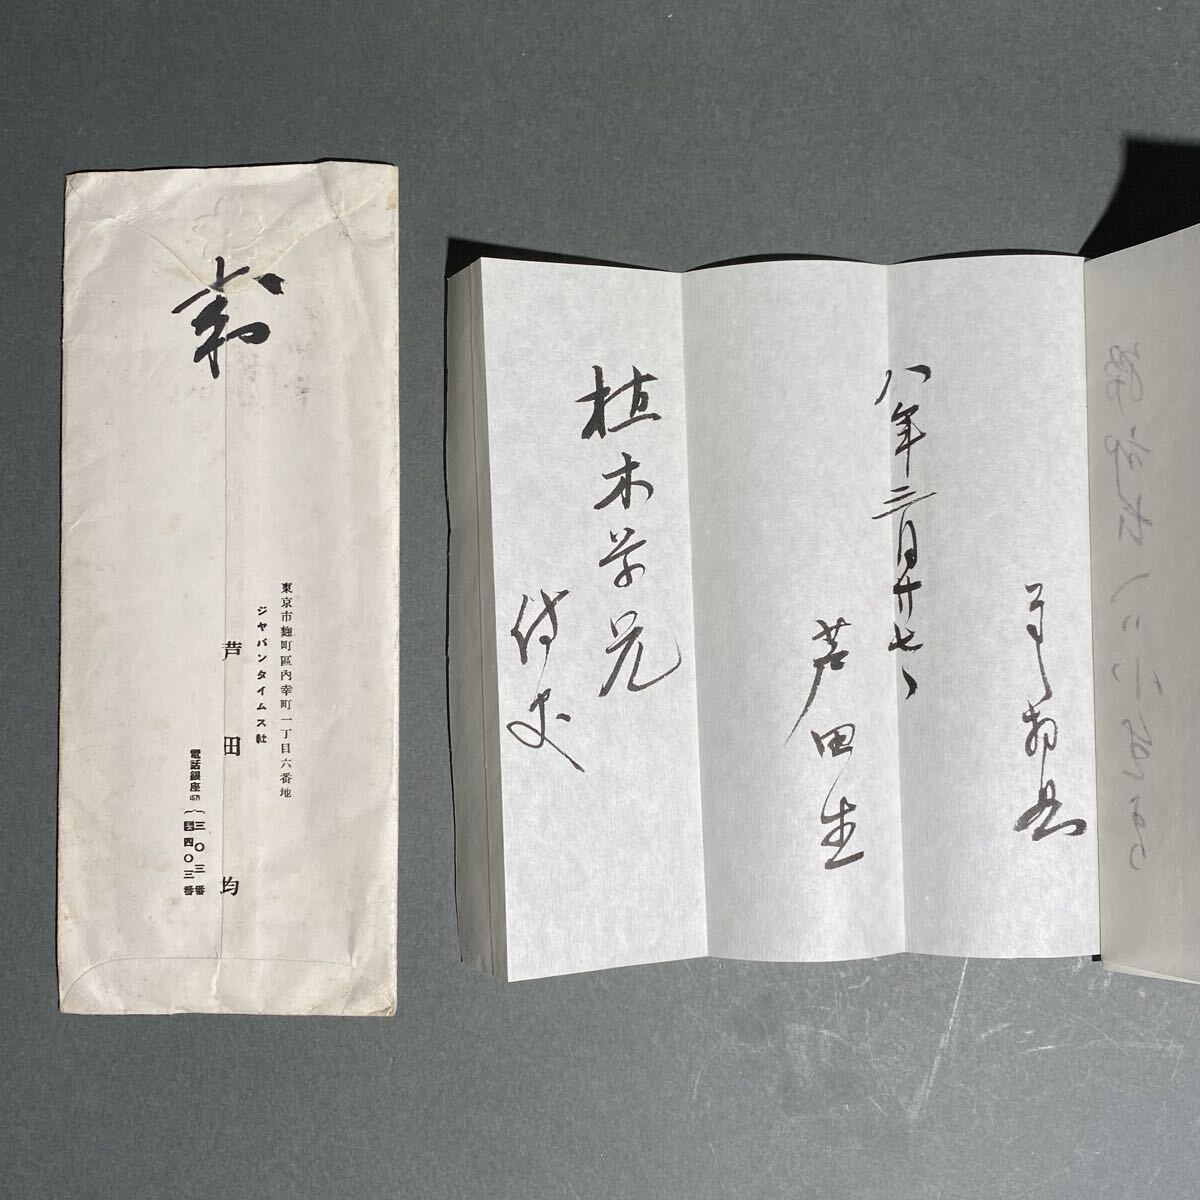 東京市麴町區内幸町一丁目六番地
ジヤパンタイムス社
芦田均
電話銀座(57)(三〇三番
四〇三番
八年三月廿七、
芦田生
植木学兄
侍史